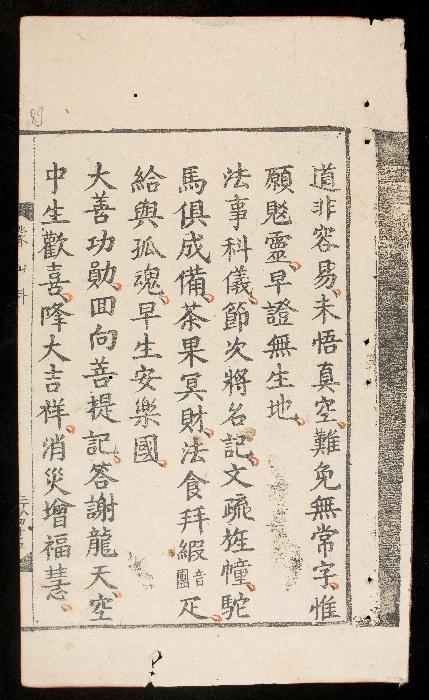 道非容易未悟真空難免無常字惟
願魂靈早證無生地
法事科儀節次將名記文疏旌幢駝
馬俱成備茶果冥財法食拜緞音團疋
給與孤魂早生安樂國
大善功勛回向菩提記答謝龍天空
中生歡喜降大吉祥消災增福慧